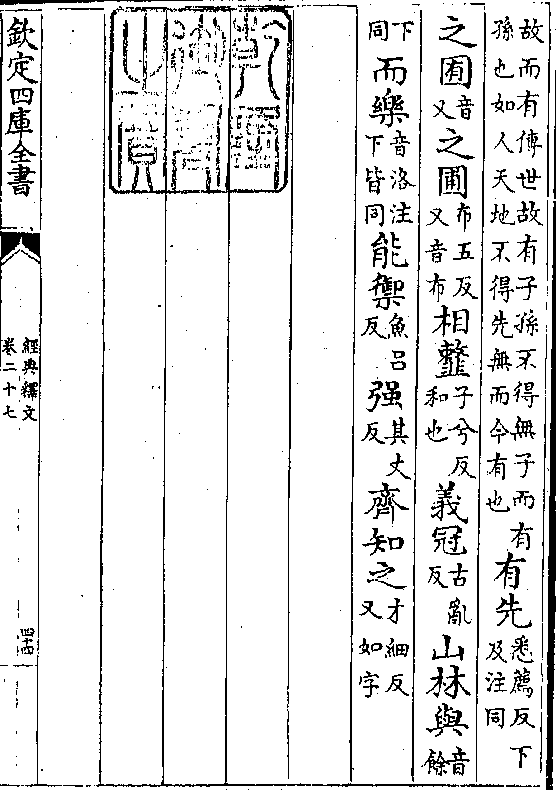 故而有傳世故有子孫不得無子而有孫也如人天地不得先無而今有也有先悉薦反下及注同
之囿音又之圃布五反又音布相𩐋子兮反和也義冠古亂反山林與音餘
下同而樂音洛注下皆同能禦魚呂反强其丈反齊知之才細反又如字
乾隆
御覽
之寶
欽定四庫全書
經典釋文
卷二十七
四十四